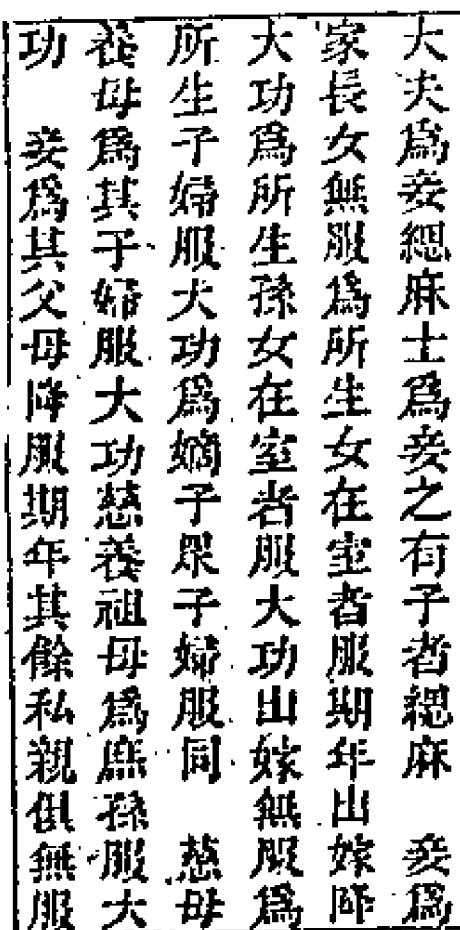 大夫爲妾緦麻士爲妾之有子者緦麻　妾爲
家長女無服爲所生女在室者服期年出嫁降
大功爲所生孫女在室者服大功出嫁無服爲
所生子婦服大功爲嫡子衆子婦服同　慈母
養母爲其子婦服大功慈養祖母爲庶孫服大
功　妾爲其父母降服期年其餘私親俱無服